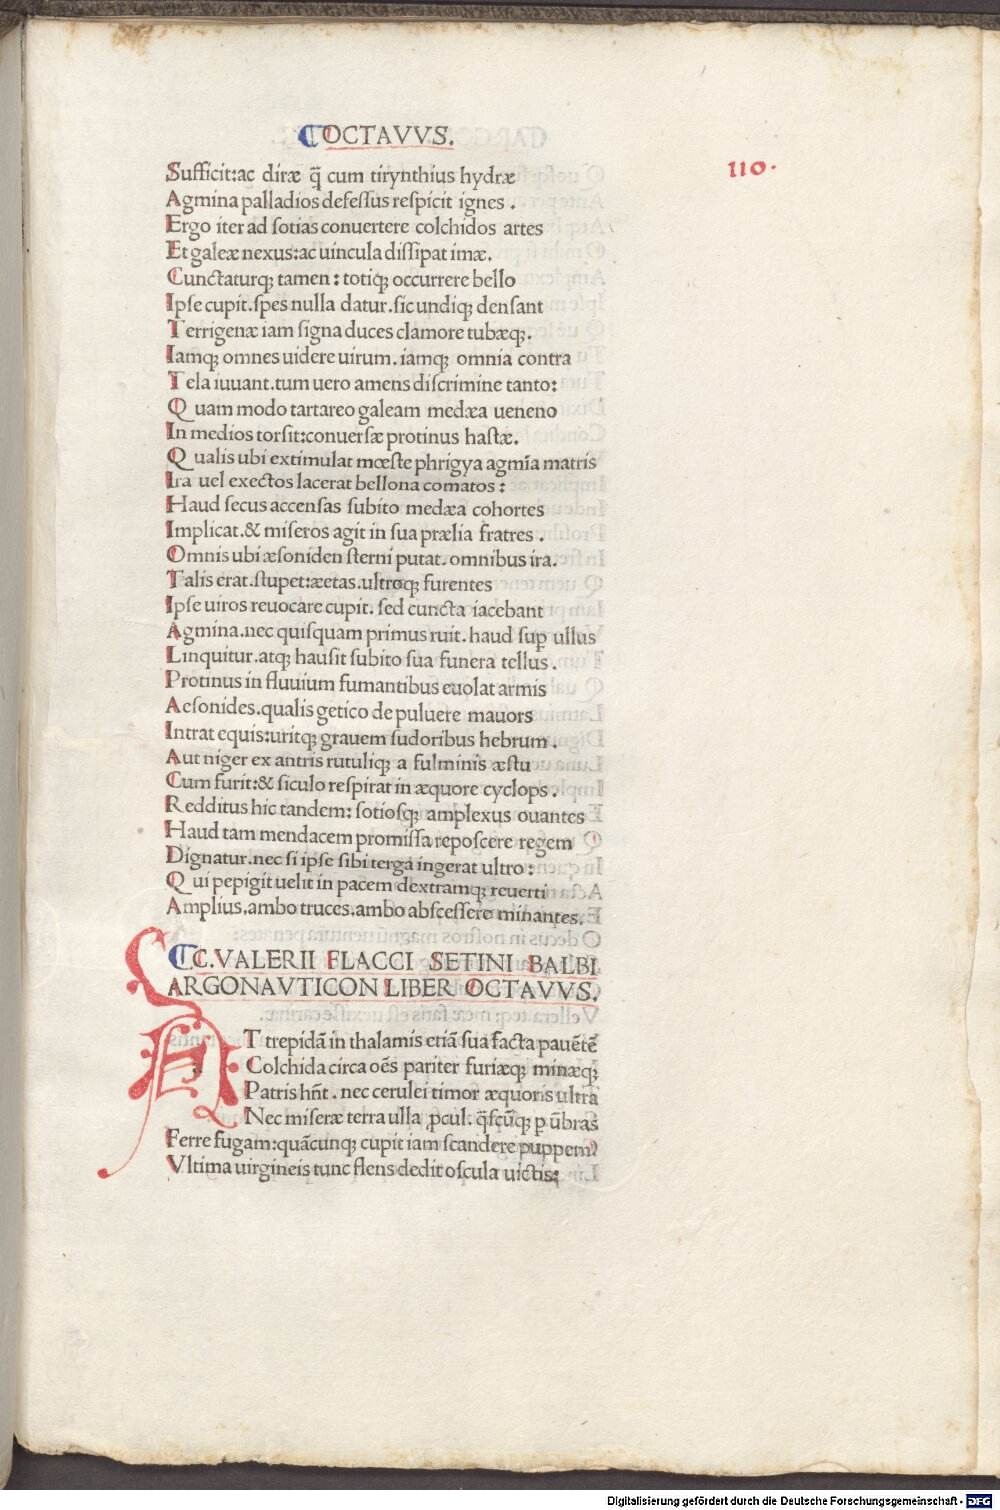 OCTAVVS.
110.
Sufficit:ac diræ q̃ cum tirynthius hydræ
Agmina palladios defessus respicit ignes.
Ergo iter ad sotias conuertere colchidos artes
Et galeæ nexus:ac uincula dissipat imæ.
Cunctaturq; tamen: totiq; occurrere bello
Ipse cupit.spes nulla datur.sic undiq; densant
Terrigenæ iam signa duces clamore tubæq;.
Iamq; omnes uidere uirum.iamq; omnia contra
Tela iuuant.tum uero amens discrimine tanto:
Quam modo tartareo galeam medæa ueneno
In medios torsit:conuersæ protinus hastæ.
Qualis ubi extimulat mœste phrigya agmĩa matris
Ira uel exectos lacerat bellona comatos:
Haud secus accensas subito medæa cohortes
Implicat.& miseros agit in sua prælia fratres.
Omnis ubi æsoniden sterni putat.omnibus ira.
Talis erat.stupet:æetas.ultroq; furentes
Ipse uiros reuocare cupit.sed cuncta iacebant
Agmina.nec quisquam primus ruit.haud sup̱ ullus
Linquitur.atq; hausit subito sua funera tellus.
Protinus in fluuium fumantibus euolat armis
Aesonides.qualis getico de puluere mauors
Intrat equis:uritq; grauem sudoribus hebrum.
Aut niger ex antris rutuliq; a fulminis æstu
Cum furit:& siculo respirat in æquore cyclops.
Redditus hic tandem: sotiosq; amplexus ouantes
Haud tam mendacem promissa reposcere regem
Dignatur.nec si ipse sibi terga ingerat ultro:
Qui pepigit uelit in pacem dextramq; reuerti
Amplius.ambo truces.ambo abscessere minantes.
C.VALERII FLACCI SETINI BALBI
ARGONAVTICON LIBER OCTAVVS.
AT trepidã in thalamis etiã sua facta pauẽtẽ
Colchida circa oẽs pariter furiæq; minæq;
Patris hñt. nec cerulei timor æquoris ultra
Nec miseræ terra ulla ꝓcul. q̃scũq; p̱ ũbras
Ferre fugam:quãcunq; cupit iam scandere puppem?
Vltima uirgineis tunc flens dedit oscula uictis:
Digitalisierung gefördert durch die Deutsche Forschungsgemeinschaft - DFG